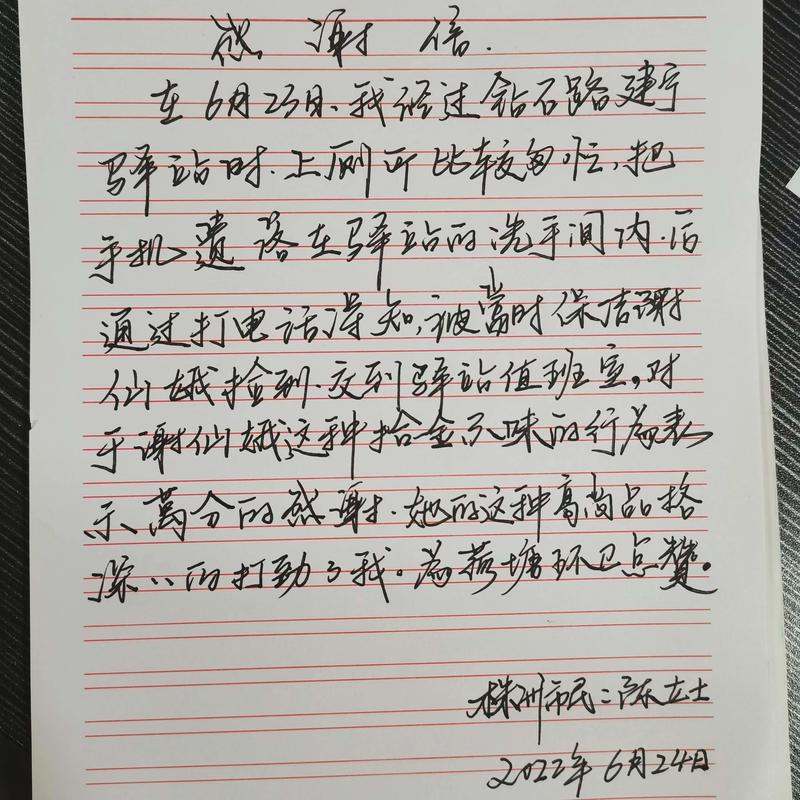 感谢信.
在6月23日、我经过钻石路建宁
驿站时.上厕所比较匆忙,把
手机遗落在驿站的洗手间内.后
通过打电话得知,被当时保洁谢
仙娥捡到.交到驿站值班室。对
于谢仙娥这种拾金不昧的行为表
示、万分的感谢.她的这种高尚品格
深丶丶的打动了我。为荷塘环卫点赞。
株洲市民:陈女士
2022年6月24日